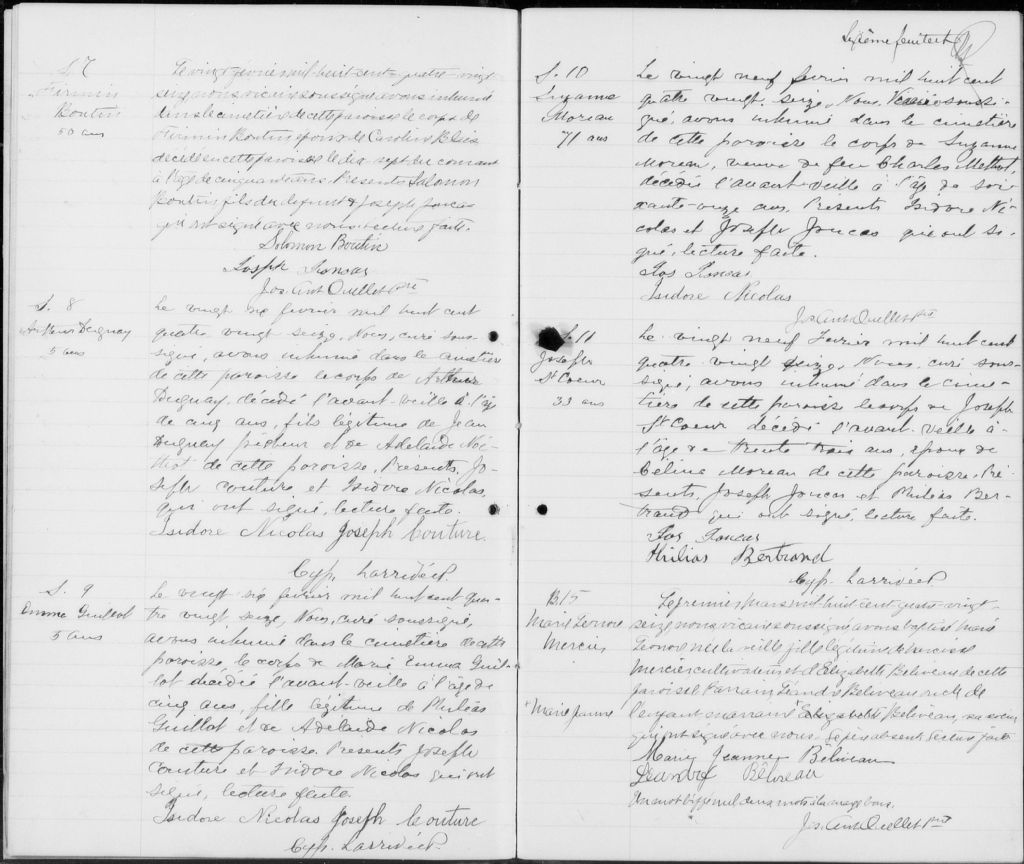 S. 7
Firmin
Boutin
50 ans
Le vingt février mil huit cent quatre-vingt
seize nous vicaire soussigné avons inhumé
dans le cimetière de cette paroisse le corps de
Firmin Boutin époux de Caroline Blais
décédé en cette paroisse le dix-sept du courant
à l'âge de cinquante ans. Présents Salomon
Boutin fils du défunt & Joseph Joncas
qui ont signé avec nous. Lecture faite.
Solomon Boutin
Joseph Joncas
Jos. Ant. Ouellet Ptre
S. 8
Arthur Duguay
5 ans
Le vingt six février mil huit cent
quatre vingt seize, Nous, curé sous-
signé, avons inhumé dans le cimetière
de cette paroisse le corps de Arthur
Duguay, décédé l'avant-veille à l'âge
de cinq ans, fils légitime de Jean
Duguay pêcheur et de Adelaide
de cette paroisse. Présents, Jo-
seph Couture et Isidore Nicolas,
qui ont signé, lecture faite.
Isidore Nicolas Joseph Couture
Cyp. Larrivée Ptr.
S. 9
Emma Guillot
5 ans
Le vingt six février mil huit cent qua-
tre vingt seize, Nous, curé soussigné,
avons inhumé dans le cimetière de cette
paroisse, le corps de Marie Emma Guil-
lot décédée l'avant-veille à l'âge de
cinq ans, fille légitime de Philéas
Guillot et de Adelaide Nicolas
de cette paroisse. Présents Joseph
Couture et Isidore Nicolas qui ont
signé, lecture faite
Isidore Nicolas Joseph Couture
Cyp. Larrivée Ptr.
Sixième feuillet
S. 10
Suzanne
Moreau
71 ans
Le vingt neuf février mil huit cent
quatre vingt seize, Nous, Vicaire soussi-
gné, avons inhumé dans le cimetière
de cette paroisse le corps de Suzanne
Moreau, veuve de feu Charles Methot,
décédée l'avant-veille à l'âge de soi-
xante-onze ans. Présents Isidore Ni-
colas et Joseph Joncas qui ont si-
gné, lecture faite.
Jos Joncas
Isidore Nicolas
Jos. Ant. Ouellet Ptre
S. 11
Joseph
St Coeur
33 ans
Le vingt neuf Février mil huit cent
quatre vingt seize, Nous, curé sous-
signé, avons inhumé dans le cime-
tière de cette paroisse le corps de Joseph
St Coeur décédé l'avant-veille à
l'âge de trente trois ans, époux de
Céline Moreau de cette paroisse. Pré-
sents, Joseph Joncas et Philéas Ber-
trand qui ont signé, lecture faite.
Jos Joncas
Philias Bertrand
Cyp. Larrivée Ptr.
B. 15
Marie Leonore
Mercier
+ Marie Jeanne
Le premier Mars mil huit cent quatre-vingt-
seize nous vicaire soussigné avons baptisé Marie
Leonore née la veille fille légitime de Narcisse
Mercier cultivateur et d'Elizabeth Beliveau de cette
paroisse. Parrain Léandre Beliveau oncle de
l'enfant marraine + Elizabeth Beliveau, sa soeur
qui ont signé avec nous. Le père absent. Lecture faite
Marie Jeanne Béliveau
Léandre Béliveau
Un mot biffé nul deux mots à la marge bons.
Jos. Ant. Ouellet Ptre